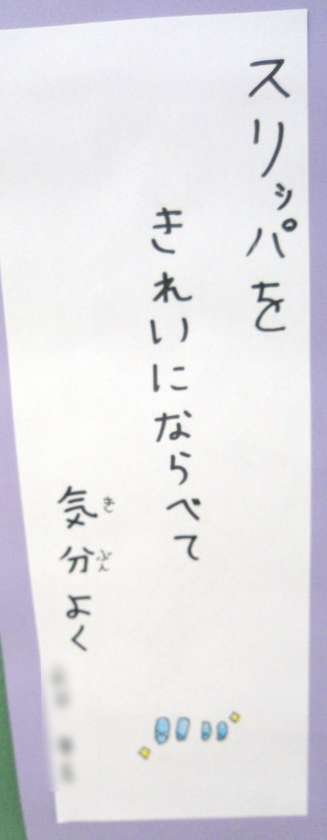 スリッパを
きれいにならべて
気分よく
きぶん